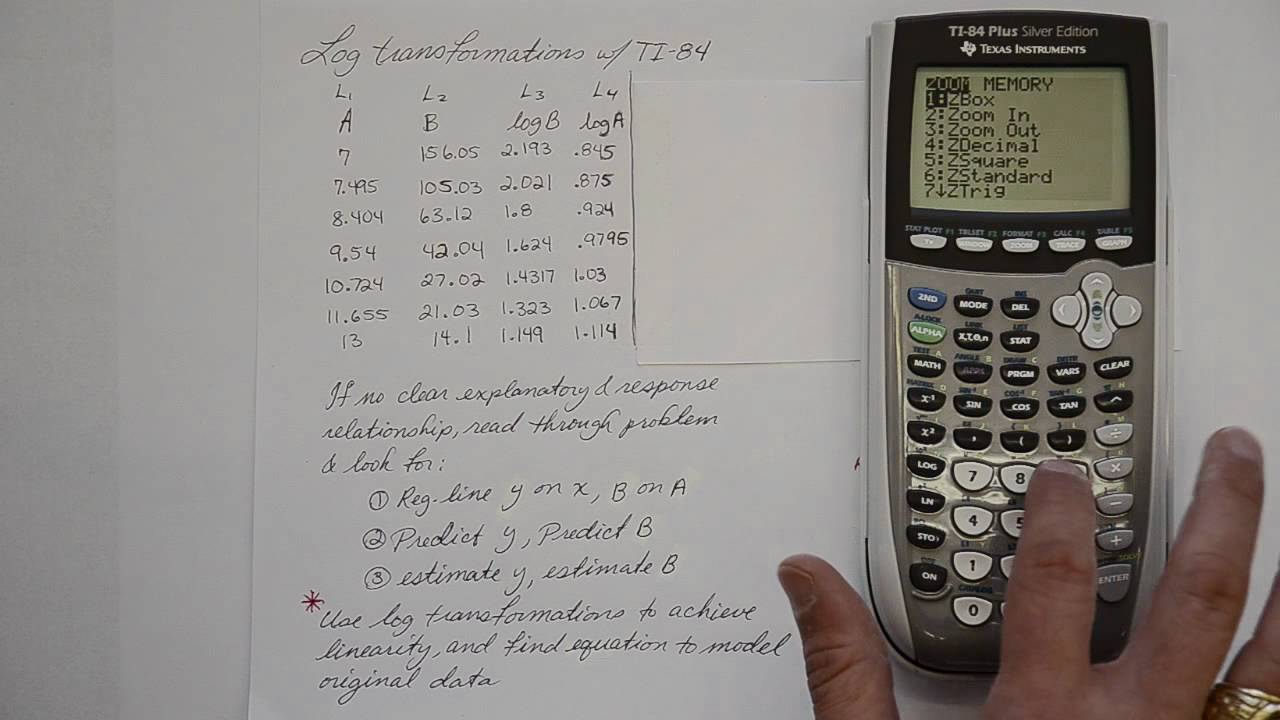 Log transformations w/ TI-84
L1 L2 L3 L4
A B log B log A
7 156.05 2.193 .845
7.495 105.03 2.021 .875
8.404 63.12 1.8 .924
9.54 42.04 1.624 .9795
10.724 27.02 1.4317 1.03
11.655 21.03 1.323 1.067
13 14.1 1.149 1.114
If no clear explanatory & response
relationship, read through problem
& look for:
① Reg. line y on x, B on A
② Predict y, Predict B
③ estimate y, estimate B
* Use log transformations to achieve
linearity, and find equation to model
original data
TI-84 Plus Silver Edition
TEXAS INSTRUMENTS
ZOOM MEMORY
1:ZBox
2:Zoom In
3:Zoom Out
4:ZDecimal
5:ZSquare
6:ZStandard
7↓ZTrig
STAT PLOT F1 TBLSET F2 FORMAT F3 CALC F4 TABLE F5
Y= WINDOW ZOOM TRACE GRAPH
QUIT INS
2ND MODE DEL
A-LOCK LINK LIST
ALPHA X,T,θ,n STAT
TEST A ANGLE B DRAW C DISTR
MATH APPS PRGM VARS CLEAR
MATRIX D SIN⁻¹ E COS⁻¹ F TAN⁻¹ G H
x⁻¹ SIN COS TAN ^
x² , ( ) ÷
LOG 7 8 ×
LN 4 5 −
STO› 1 +
ON 0 ENTER